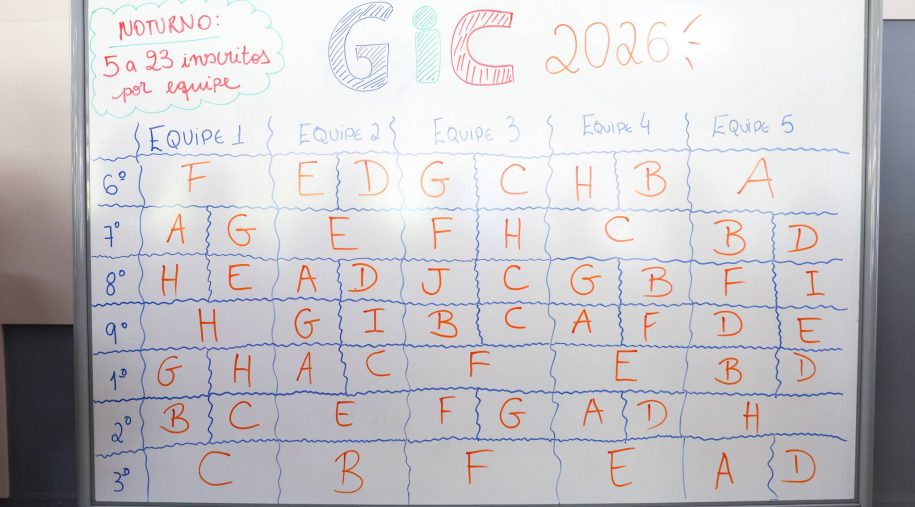 NOTURNO:
5 a 23 inscritos
por equipe
GiC 2026
EQUIPE 1 EQUIPE 2 EQUIPE 3 EQUIPE 4 EQUIPE 5
6º F E D G C H B A
7º A G E F H C B D
8º H E A D J C G B F I
9º H G I B C A F D E
1º G H A C F E B D
2º B C E F G A D H
3º C B F E A D